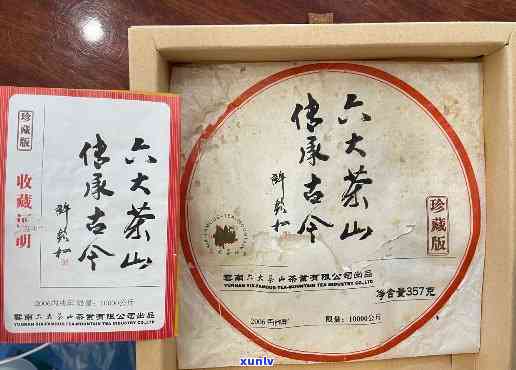 珍藏版
收藏证明
六大茶山
传承古今
2006丙戌年 限量：10000公斤
雲南六大茶山茶業有限公司出品
YUNNAN SIX-FAMOUS-TEA-MOUNTAIN TEA INDUSTRY CO.,LTD
六大茶山
传承古今
珍藏版
雲南六大茶山茶業有限公司出品
YUNNAN SIX-FAMOUS-TEA-MOUNTAIN TEA INDUSTRY CO.,LTD
净含量357克
2006 丙戌年 限量：10000公斤
xunlv